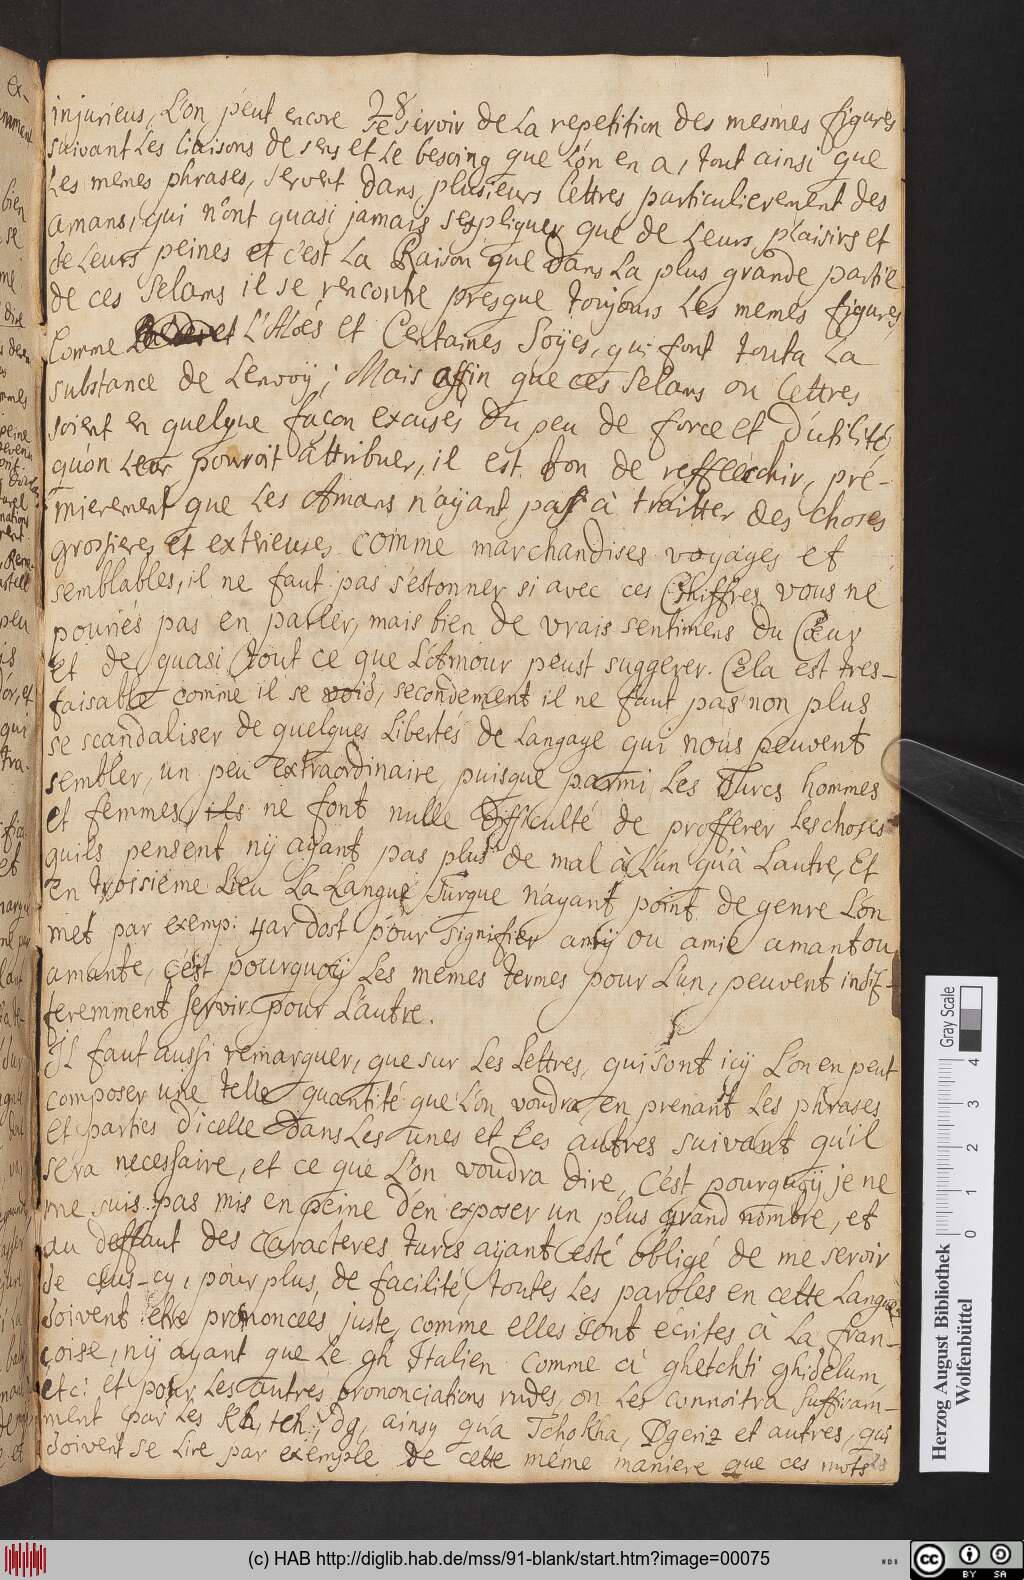 injurieus, L'on peut encore se servir de La repetition des mesmes figures
suivant Les liaisons de sens et Le besoing que L'on en a, tout ainsi que
Les memes phrases, servent dans plusieurs lettres particulierement des
amans, qui n'ont quasi jamais s'expliquer que de Leurs plaisirs et
de Leurs peines et c'est La Raison que dans La plus grande partie
de ces Selams il se rencontre presque toujours Les memes figures,
Comme L'Aloés et Certaines Soÿes, qui font toutta La
substance de L'envoÿ; Mais affin que ces Selams ou lettres
soient en quelque façon excusés du peu de force et d'utilité,
qu'on Leur pouroit attribuer, il est bon de reffléchir, pré-
mierement que Les Amans n'aÿant pas à traitter des choses
grossieres et extrieuses comme marchandises voyages et
semblables, il ne faut pas s'estonner si avec ces Chiffres vous ne
pouriés pas en parler, mais bien de vrais sentimens du Cœur
Et de quasi tout ce que L'Amour peust suggerer. Cela est tres-
faisable comme il se void, secondement il ne faut pas non plus
se scandaliser de quelques Libertés de Langage qui nous peuvent
sembler, un peu extraordinaire, puisque parmi Les Turcs hommes
et femmes, ils ne font nulle difficulté de profferer Les choses
quils pensent nÿ aÿant pas plus de mal à L'un qu'à Lautre, Et
En troisième Lieu La Langue Turque n'ayant point de genre L'on
met par exemp: yar dost pour signifier amÿ ou amie amant ou
amante, c'est pourquoÿ Les memes termes pour L'un, peuvent indif-
feremment servir pour L'autre.
Il faut aussi remarquer, que sur Les Lettres, qui sont icÿ L'on en peut
composer une telle quantité que L'on voudra, en prenant Les phrases
et parties d'icelle dans Les unes et Les autres suivant qu'il
sera necessaire, et ce que L'on voudra dire, C'est pourquoÿ je ne
me suis pas mis en peine d'en exposer un plus grand nombre, et
au deffaut des caracteres turcs aÿant esté obligé de me servir
de ceus-cy, pour plus, de facilité, toutes Les paroles en cette Langue
doivent être prononcées juste, comme elles sont écrites à La fran-
çoise, nÿ aÿant que Le gh Italien comme à ghetchti ghidelum
etc: et pour Les autres prononciations rudes, on Les connoitra suffisam-
ment par Les kh, tch, dg, ainsy qu'a Tchokha, Dgeriz et autres, qui
doivent se Lire par exemple de cette même maniere que ces mots
Gray Scale
0 1 2 3 4
Herzog August Bibliothek
Wolfenbüttel
(c) HAB http://diglib.hab.de/mss/91-blank/start.htm?image=00075
WDB
cc BY SA